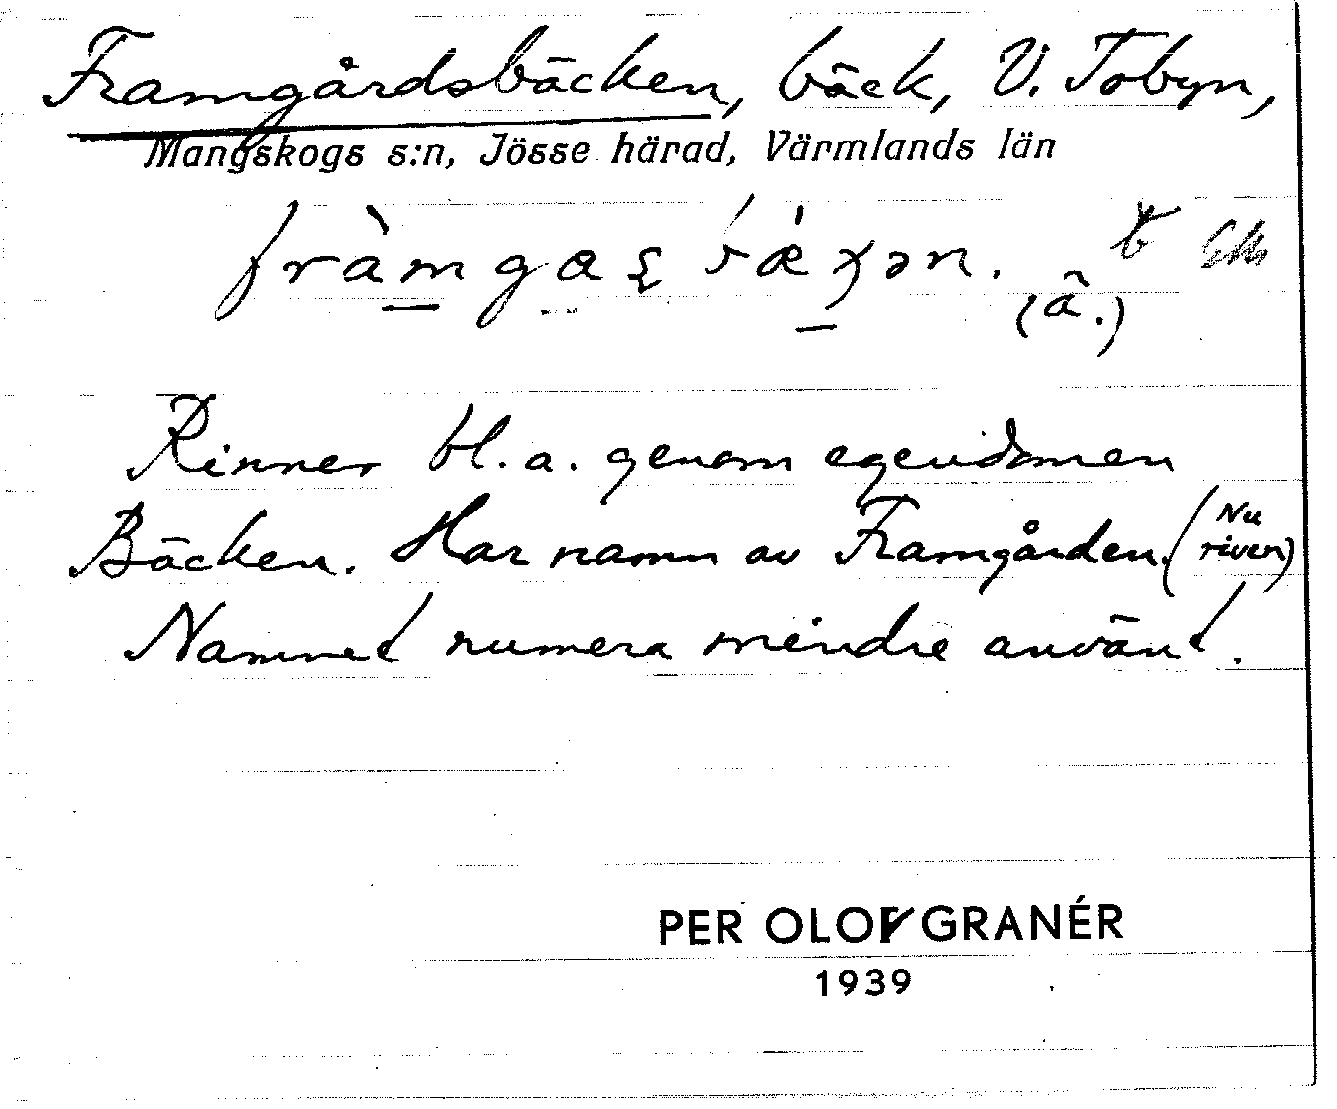 Framgårdsbäcken, bäck, V. Tobyn,
Mangskogs s:n, Jösse härad, Värmlands län
(â.)
Rinner bl.a. genom egendomen
Bäcken. Har namn av Framgården. (Nu riven)
Namnet numera mindre använt.
PER OLOF GRANÉR
1939